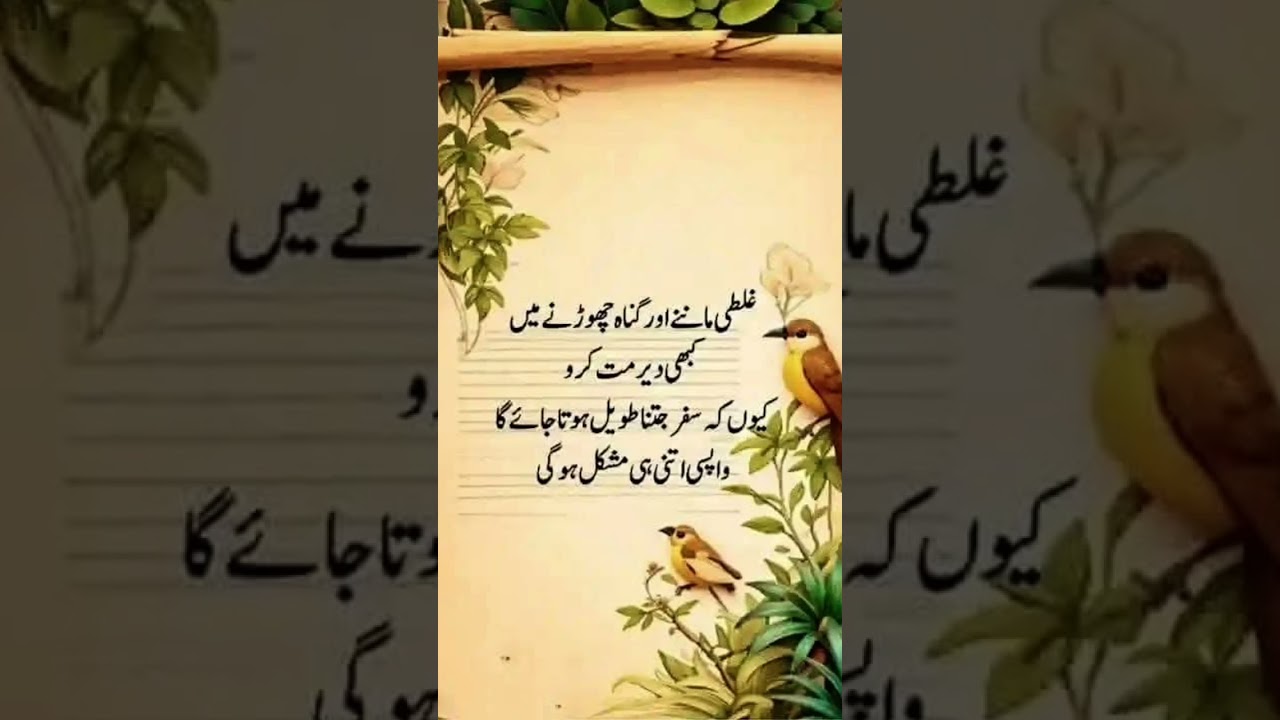 غلطی ماننے اور گناہ چھوڑنے میں
کبھی دیر مت کرو
کیوں کہ سفر جتنا طویل ہوتا جائے گا
واپسی اتنی ہی مشکل ہو گی